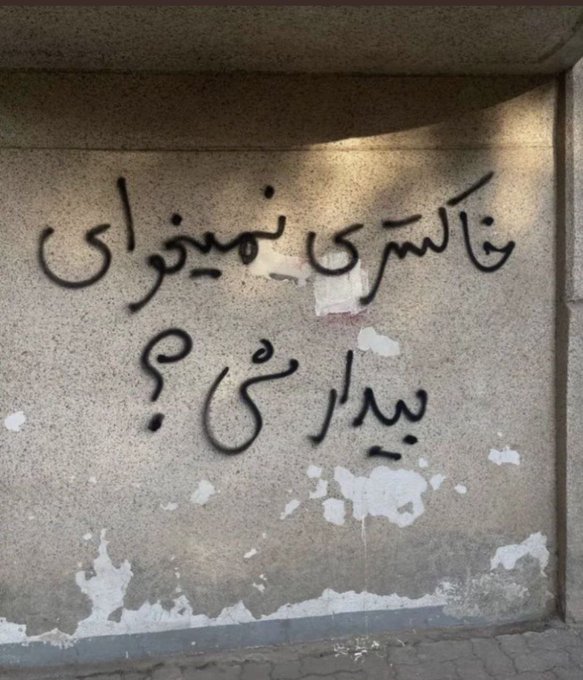 خاکستری نمیخوای
بیدار شی؟